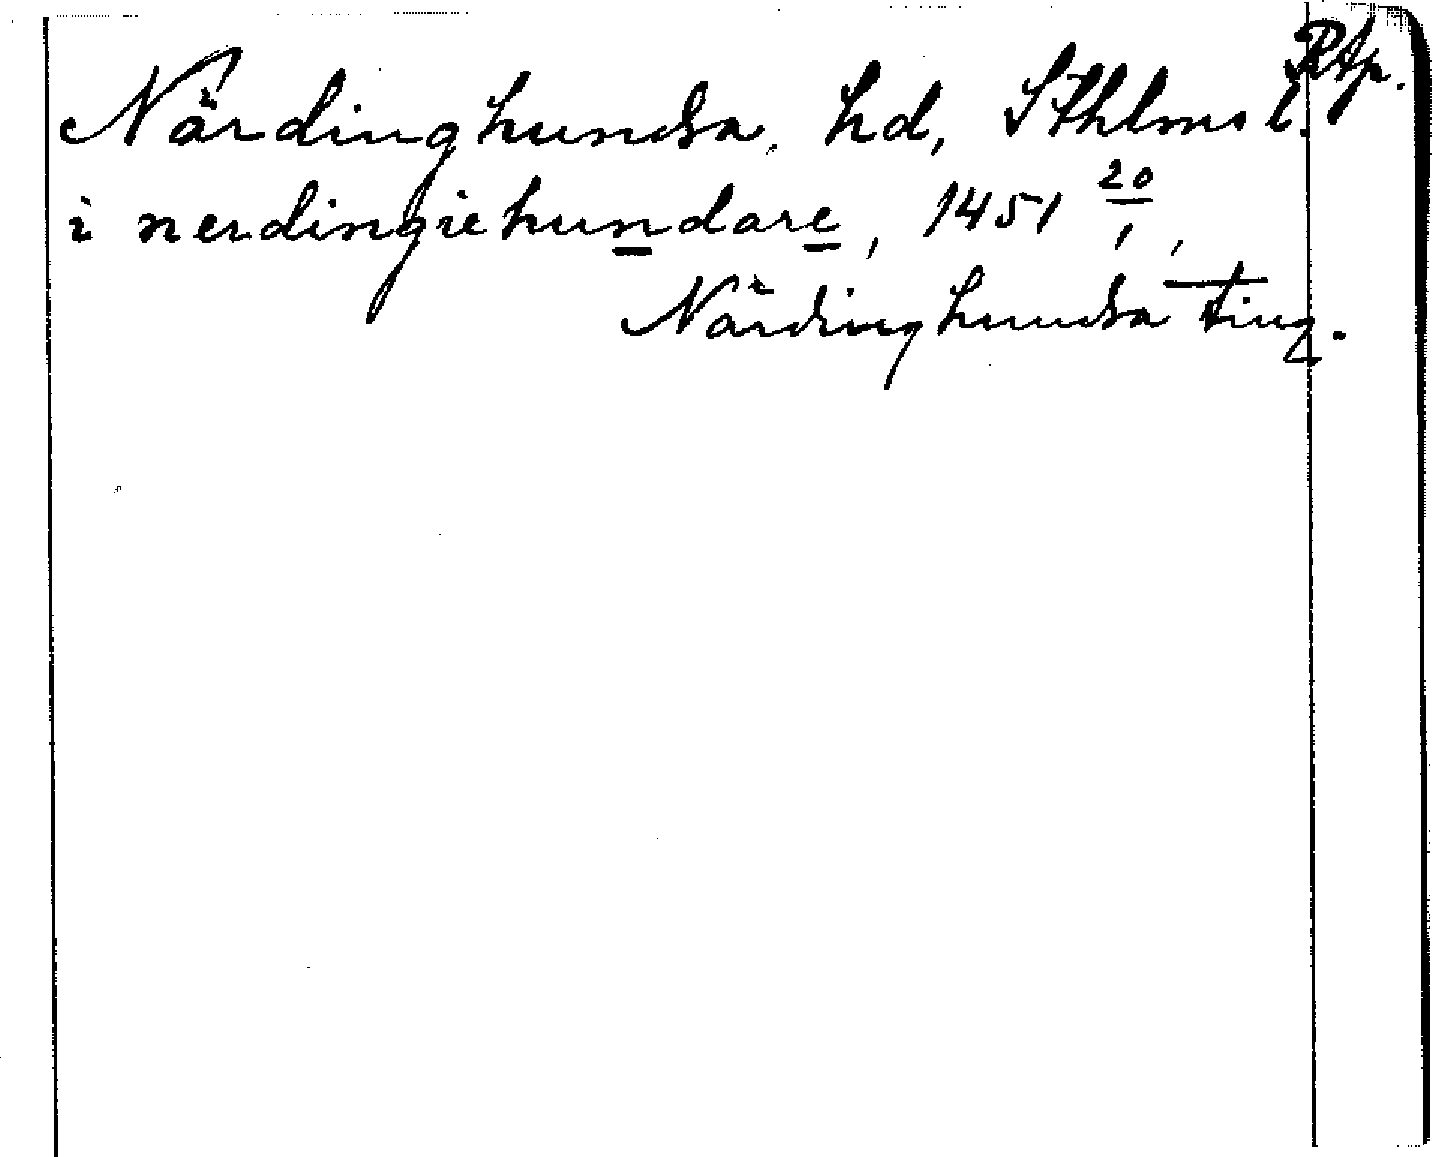 Rtp.
Närdinghundra, hd, Sthlms l.
i nerdingiehundare, 1451 20/1,
Närdinghundra ting.